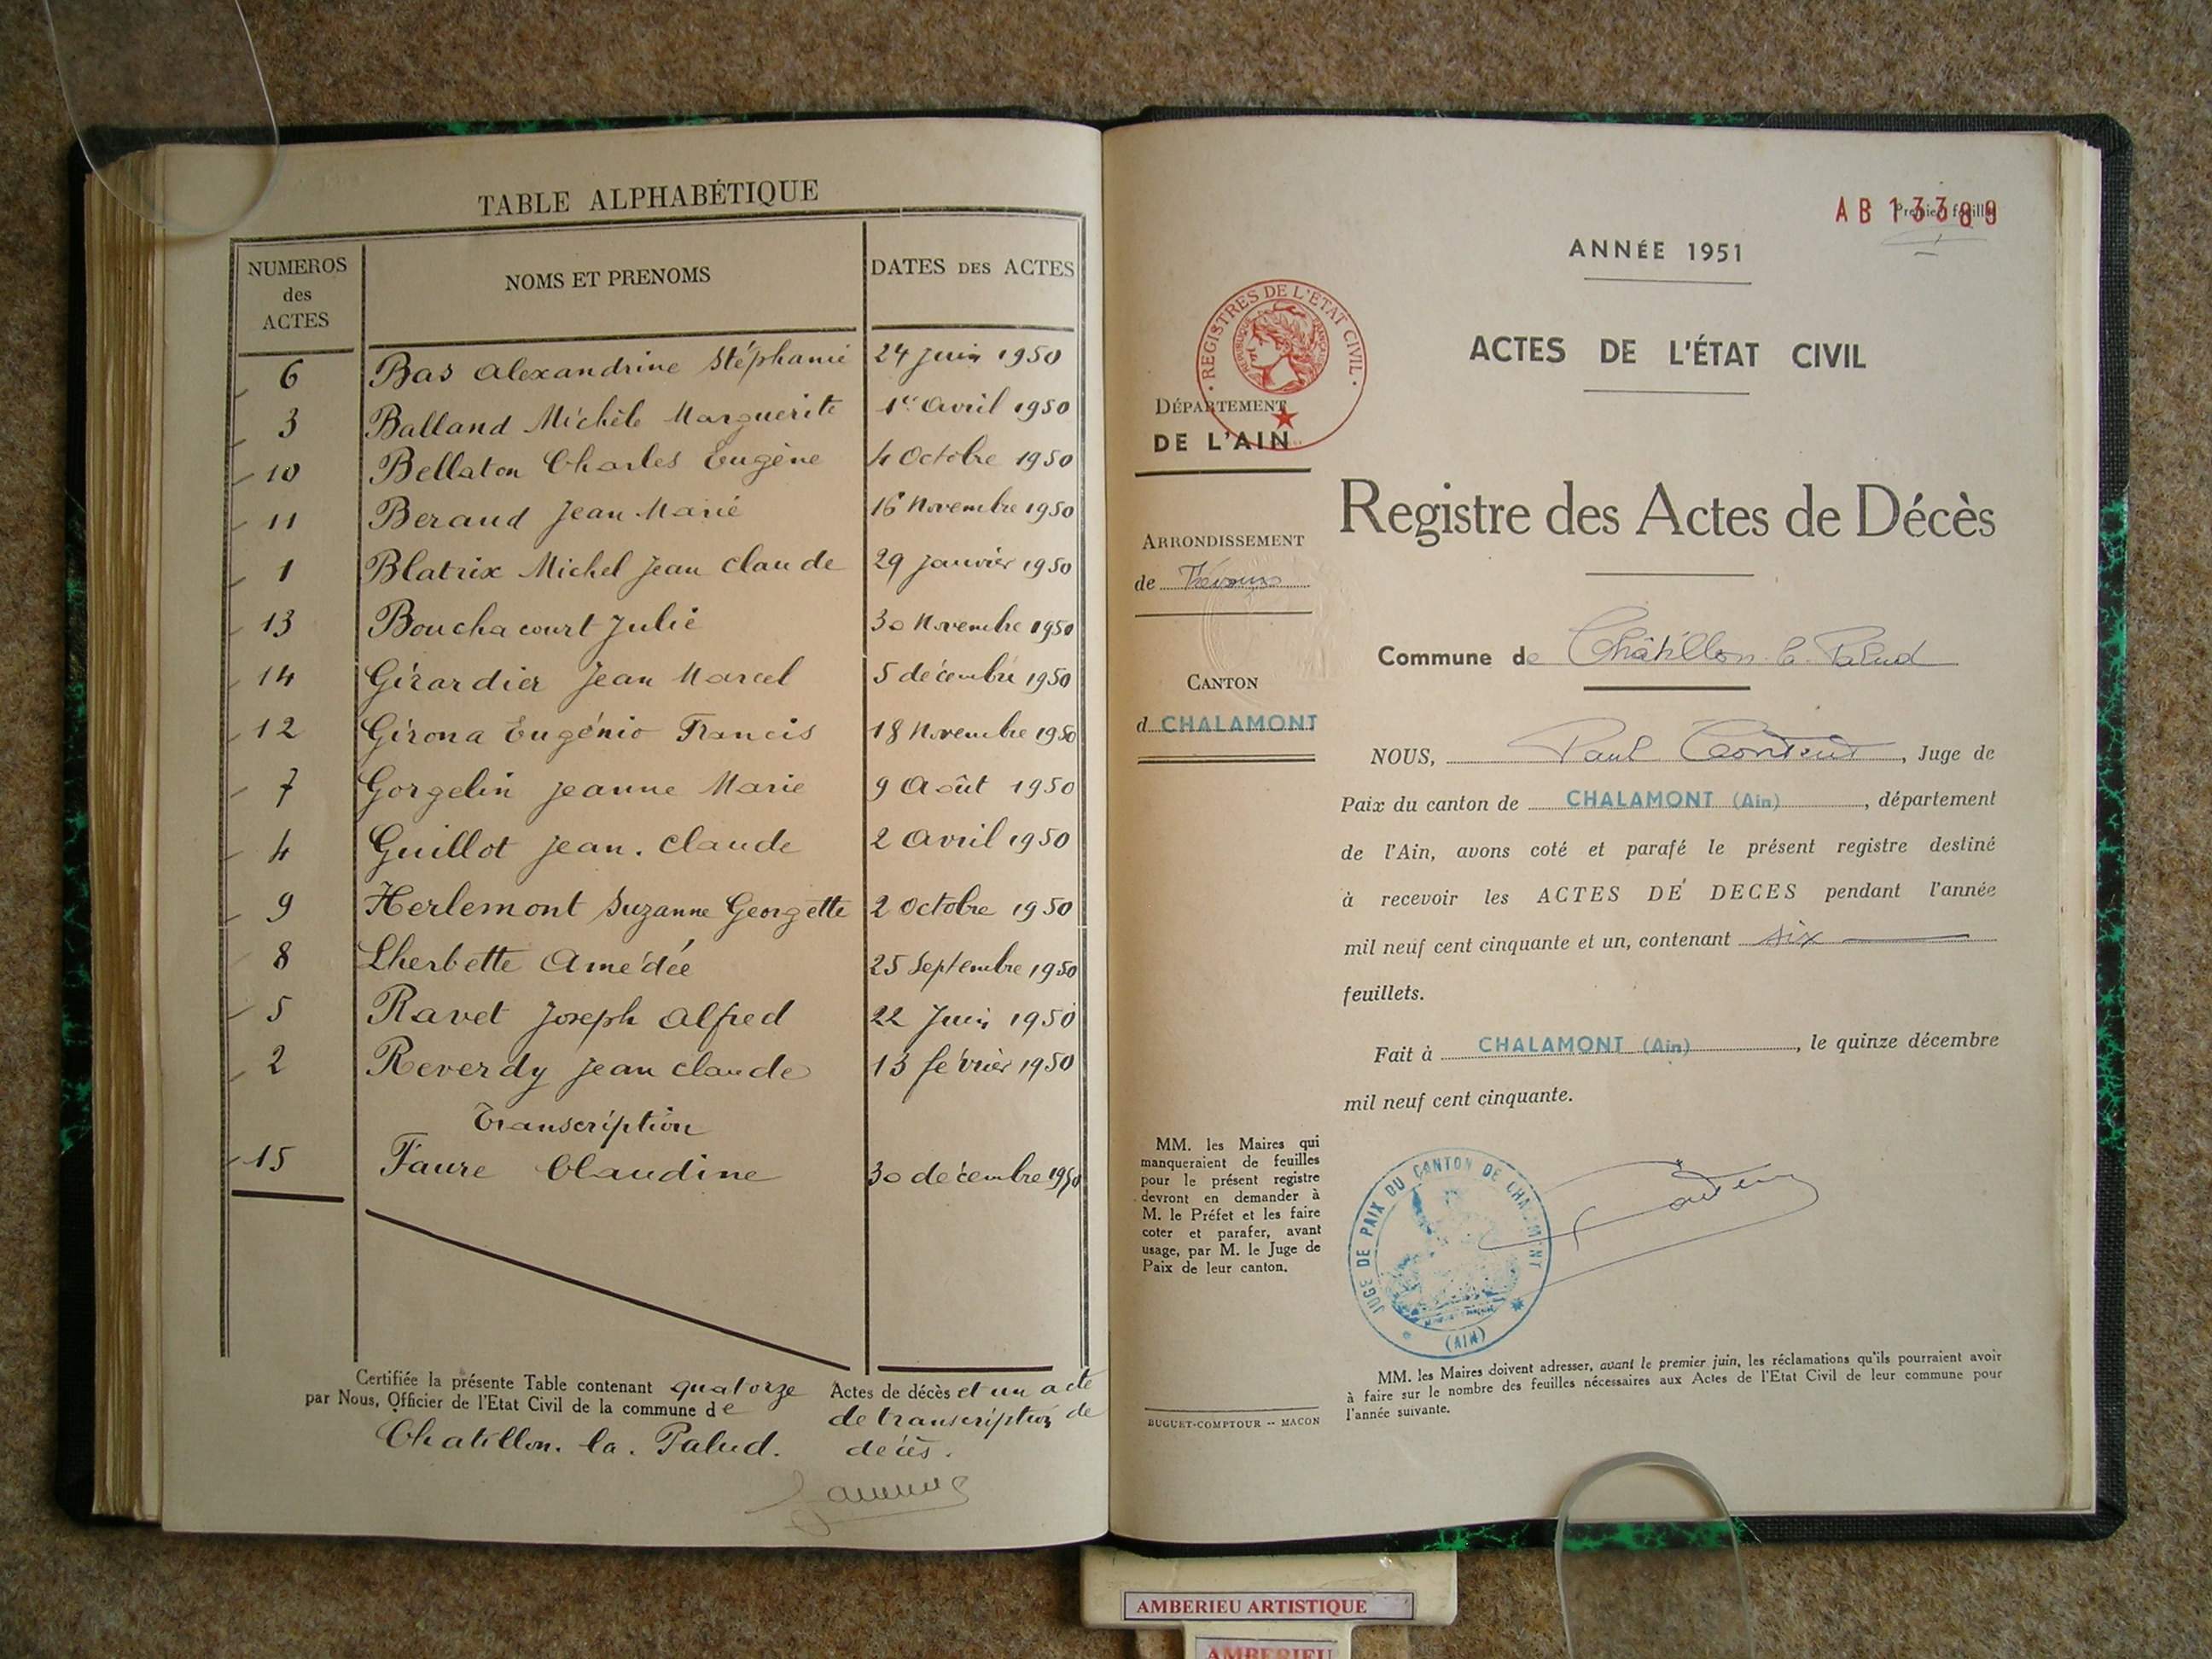 TABLE ALPHABÉTIQUE
NUMEROS des ACTES NOMS ET PRENOMS DATES DES ACTES
6 Bas Alexandrine Stéphanie 24 Juin 1950
3 Balland Michèle Marguerite 1er Avril 1950
10 Bellaton Charles Eugène 4 Octobre 1950
11 Beraud Jean Marie 16 Novembre 1950
1 Blatrix Michel Jean Claude 29 Janvier 1950
13 Bouchacourt Julie 30 Novembre 1950
14 Girardier Jean Marcel 5 décembre 1950
12 Girona Eugénio Francis 18 Novembre 1950
7 Gorgelin Jeanne Marie 9 Août 1950
4 Guillot Jean. Claude 2 Avril 1950
9 Herlemont Suzanne Georgette 2 Octobre 1950
8 Lherbette Amédée 25 Septembre 1950
5 Ravet Joseph Alfred 22 Juin 1950
2 Reverdy Jean Claude 13 février 1950
Transcription
15 Faure Claudine 30 décembre 1950
Certifiée la présente Table contenant quatorze Actes de décès et un acte
par Nous, Officier de l'Etat Civil de la commune de de transcription de
Chatillon. la. Palud. décès.
AB 13389
Premier feuillet
ANNÉE 1951
REGISTRES DE L'ETAT CIVIL
RÉPUBLIQUE FRANÇAISE
ACTES DE L'ÉTAT CIVIL
DÉPARTEMENT
DE L'AIN
Registre des Actes de Décès
ARRONDISSEMENT
de Trévoux
Commune de Châtillon la Palud
CANTON
d CHALAMONT
NOUS, Paul , Juge de
Paix du canton de CHALAMONT (Ain) , département
de l'Ain, avons coté et parafé le présent registre destiné
à recevoir les ACTES DE DECES pendant l'année
mil neuf cent cinquante et un, contenant six
feuillets.
Fait à CHALAMONT (Ain) , le quinze décembre
mil neuf cent cinquante.
MM. les Maires qui
manqueraient de feuilles
pour le présent registre
devront en demander à
M. le Préfet et les faire
coter et parafer, avant
usage, par M. le Juge de
Paix de leur canton.
JUGE DE PAIX DU CANTON DE CHALAMONT
(AIN)
MM. les Maires doivent adresser, avant le premier juin, les réclamations qu'ils pourraient avoir
à faire sur le nombre des feuilles nécessaires aux Actes de l'Etat Civil de leur commune pour
l'année suivante.
BUGUET-COMPTOUR -- MACON
AMBERIEU ARTISTIQUE
AMBERIEU